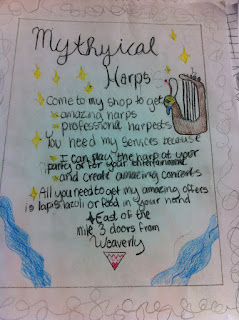 Mythyical
Harps
Come to my shop to get
amazing harps
professional harpests
You need my services because
I can play the harp at your
party or for your entertainment
and create amazing concerts
All you need to get my amazing offers
is lapis lazoli or food in your hand
East of the
nile 3 doors from
Waverly